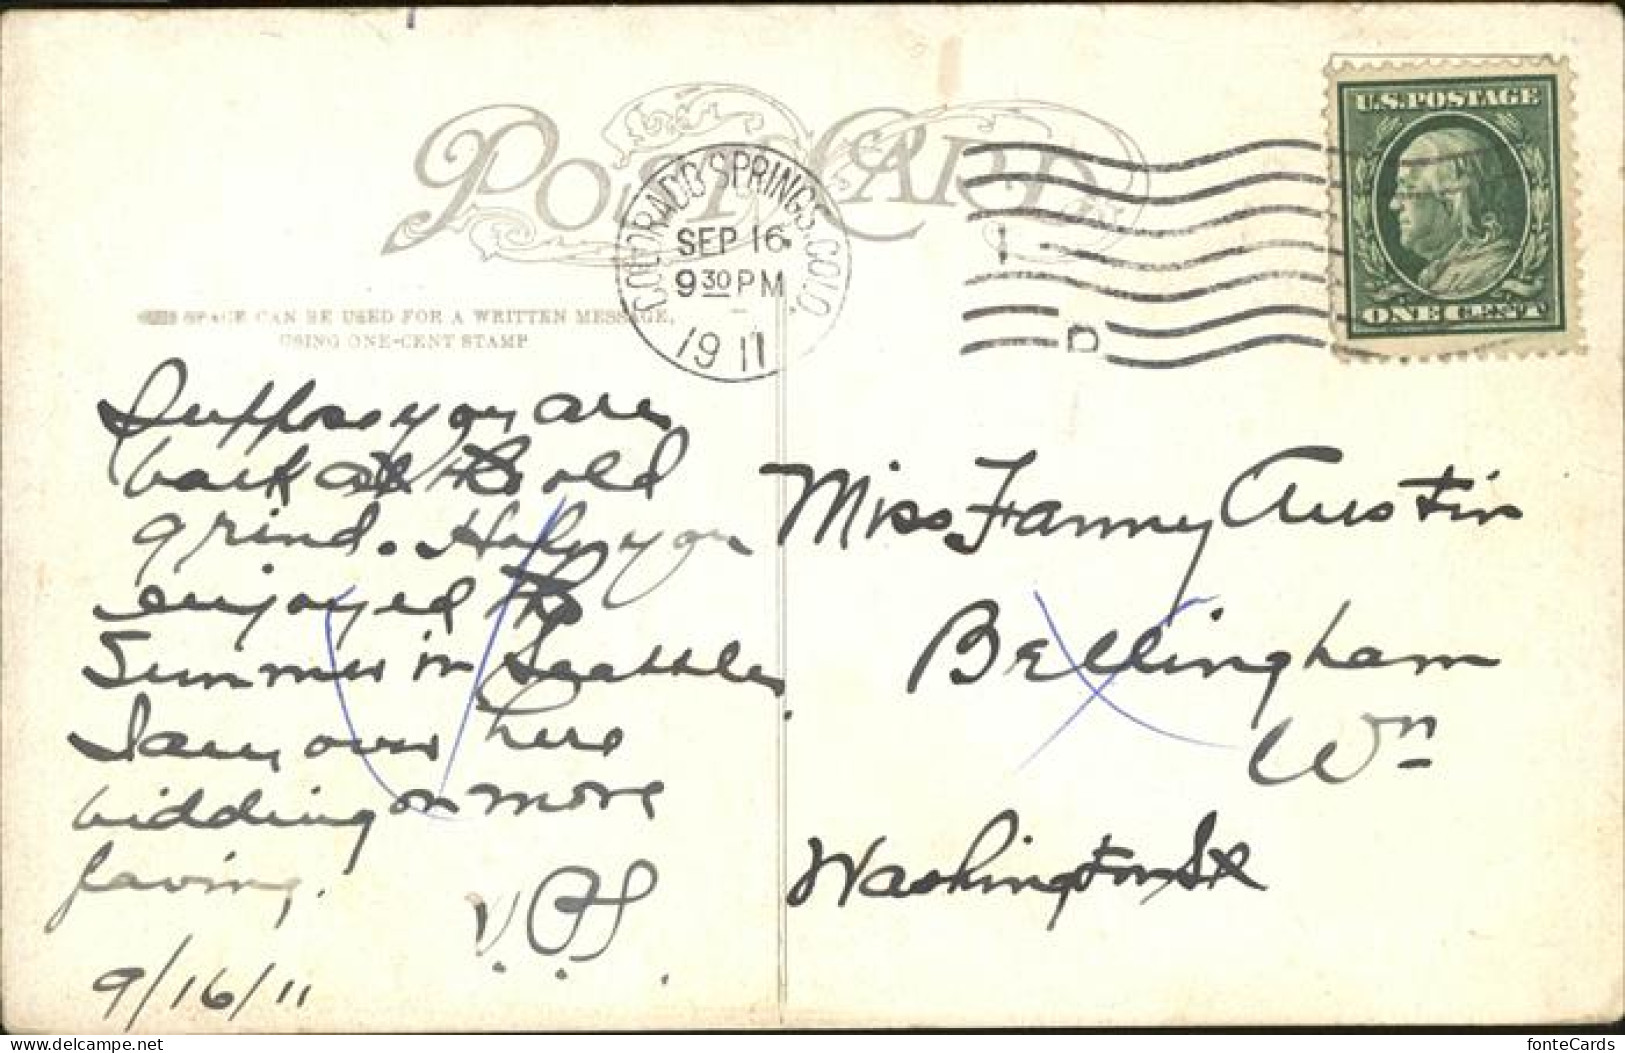 POST CARD
COLORADO SPRINGS. COLO.
SEP 16
9 30 PM
1911
D
U.S. POSTAGE
ONE CENT
THIS SPACE CAN BE USED FOR A WRITTEN MESSAGE,
USING ONE-CENT STAMP
Suppose you are
back at the old
grind. Hope you
enjoyed the
Summer in Seattle.
I am over here
bidding on more
paving.
9/16/11
Miss Fanny Austin
Bellingham
Wn
Washington St
delcampe.net
fonteCards